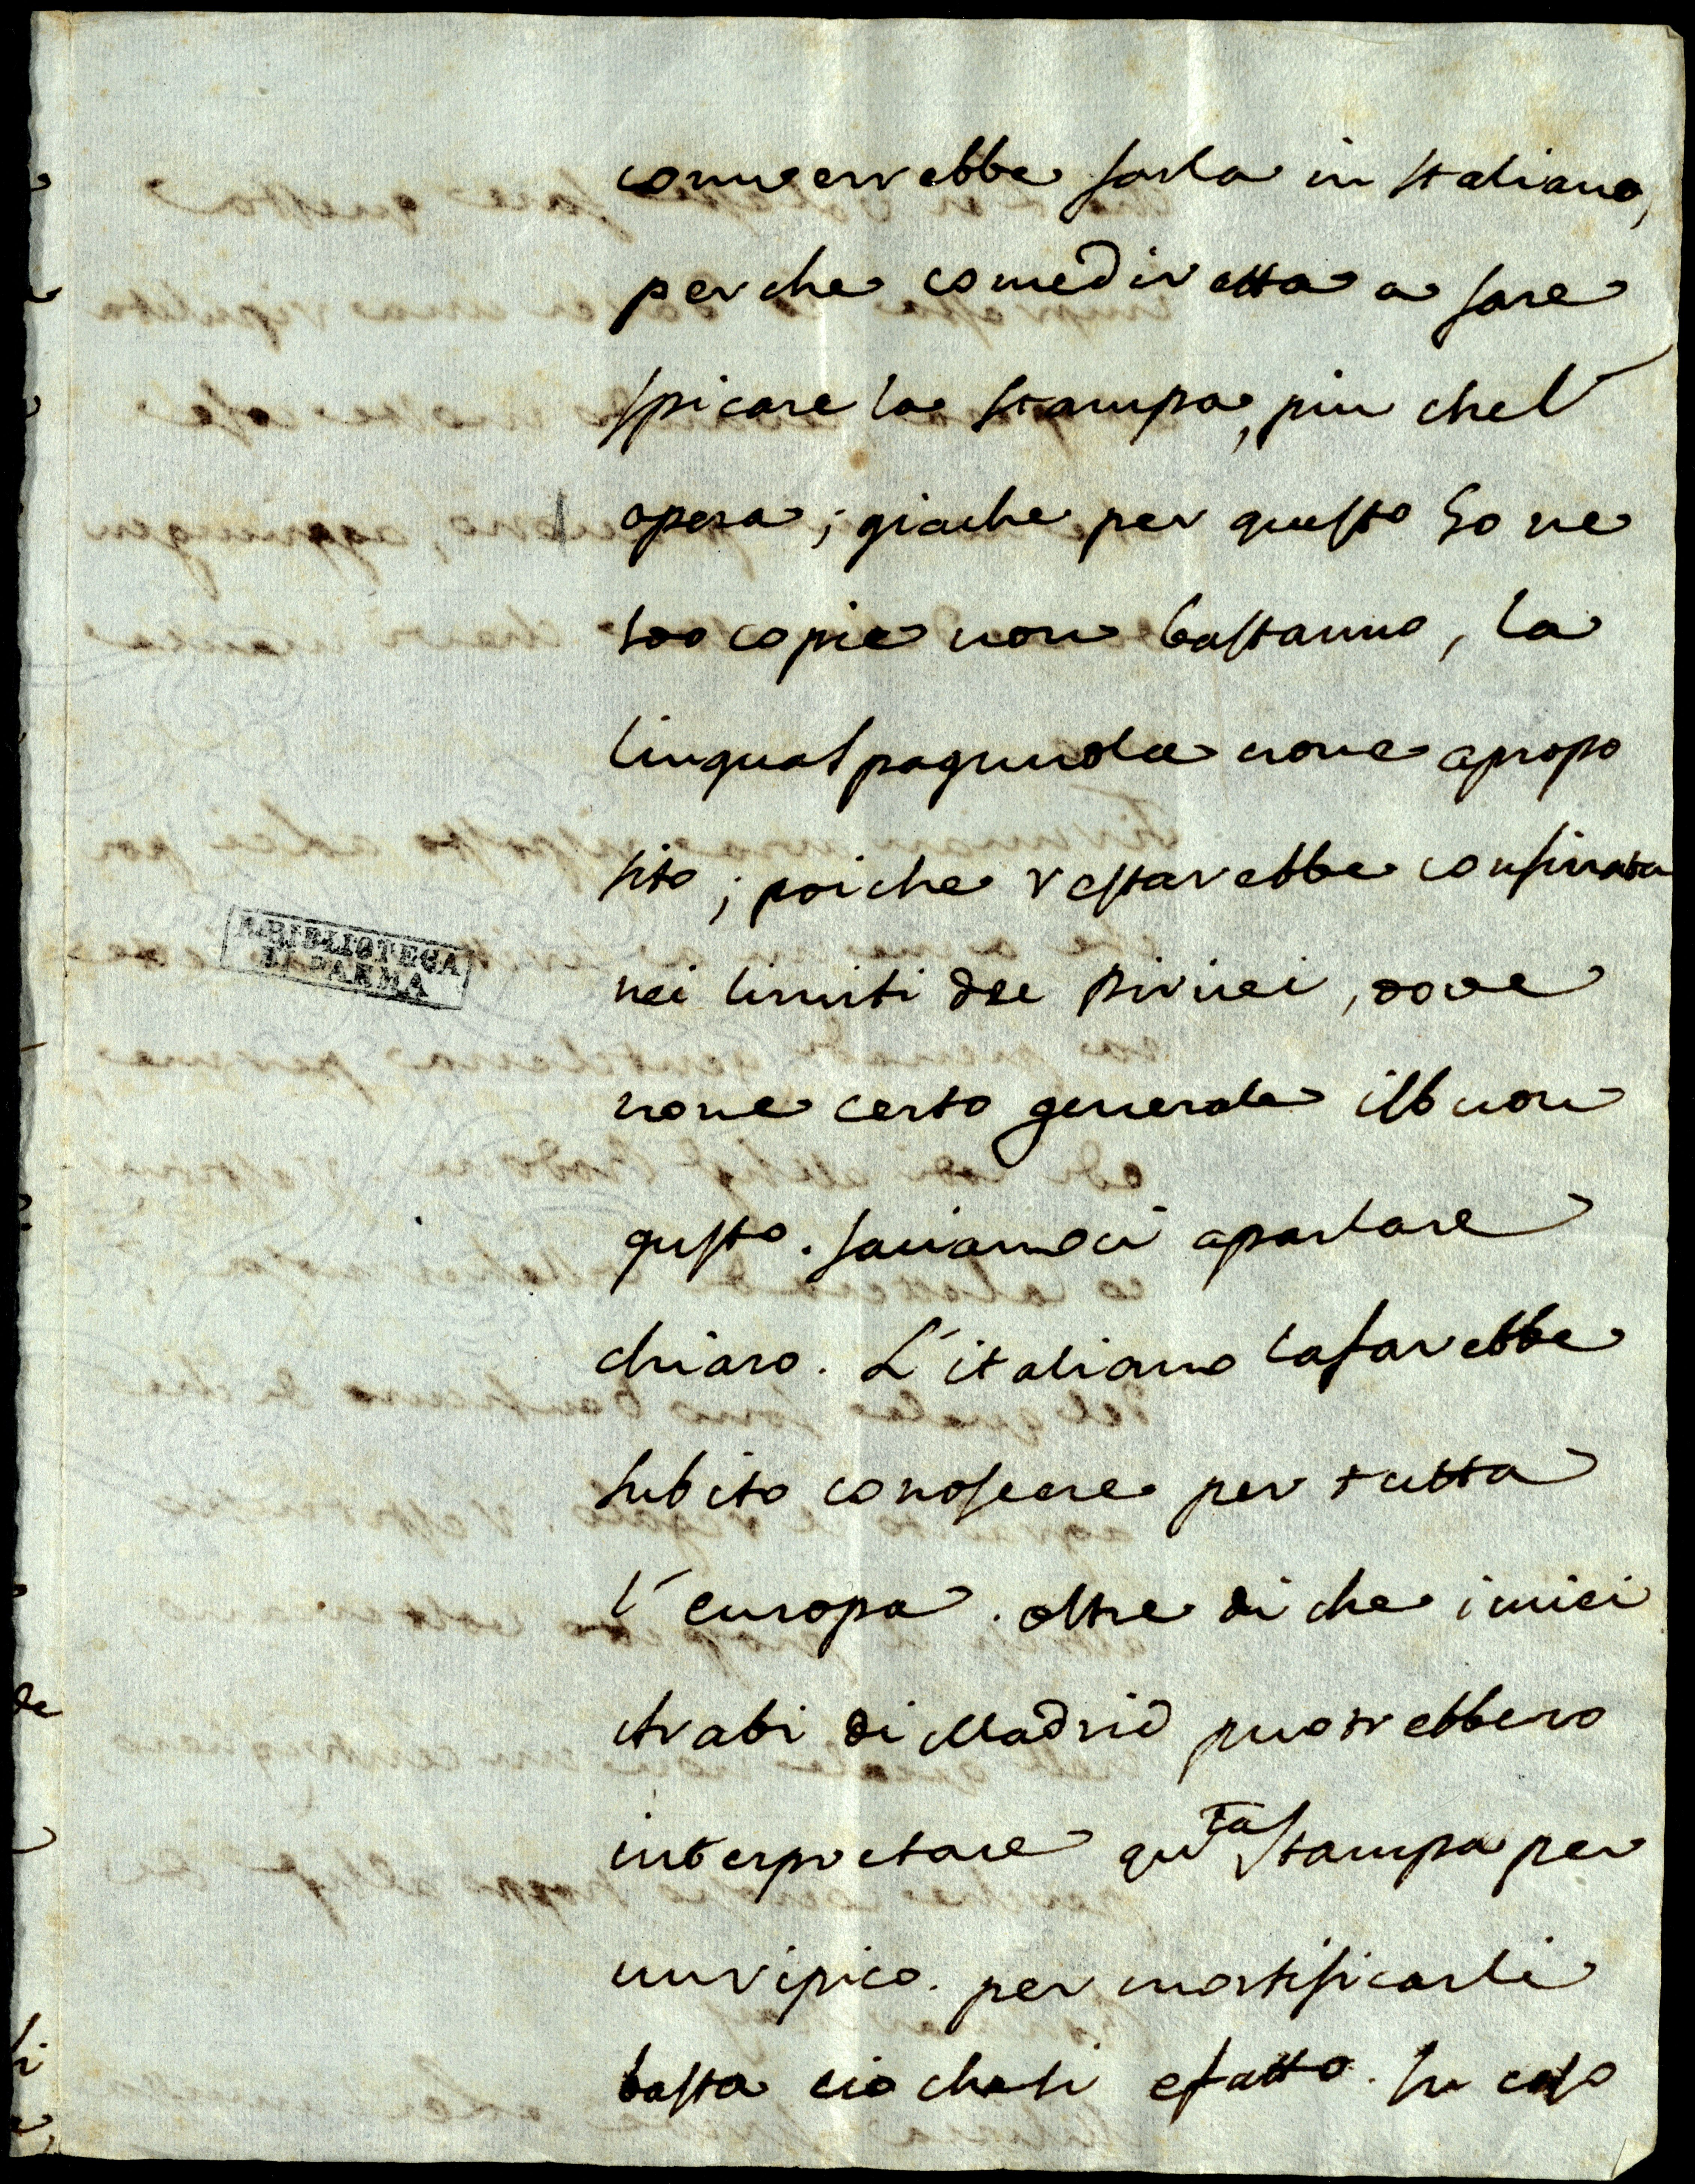 converrebbe farla in Italiano,
perche come diretta a fare
spicare la stampa, piu che l'
opera; giache per questo 50 ne
100 copie non bastanno, la
lingua Spagnuola none apropo
sito; poiche restarebbe confinata
nei limiti dei Pirinei, dove
none certo generale il buon
gusto. faciamoci aparlare
chiaro. L'italiano lafarebbe
subito conoscere per tutta
l'europa. oltre di che i miei
Arabi di Madrid puotrebbero
interpretare qu.ta stampa per
un ripico. per mortificarli
basta cio che si efatto. In caso
R. BIBLIOTECA
DI PARMA